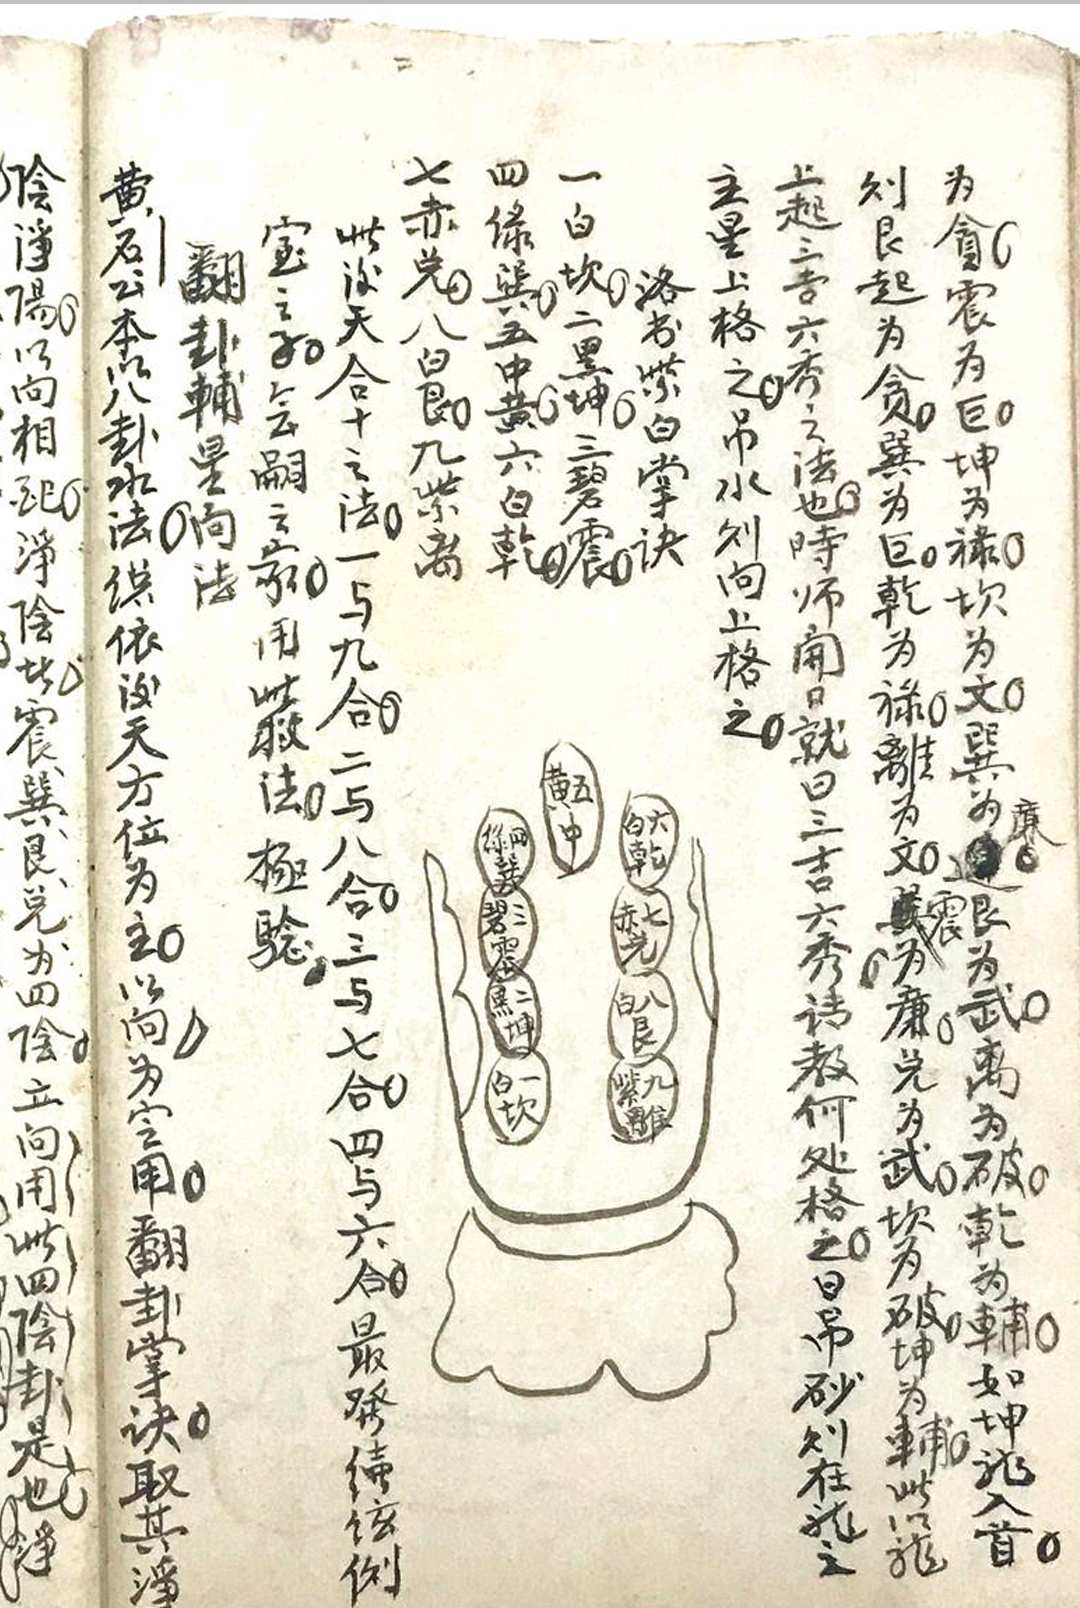 为貪震为巨坤为祿坎为文巽为廉艮为武离为破乾为輔如坤龍入首
则艮起为貪巽为巨乾为祿離为文震为廉兑为武坎为破坤为輔此以龍
上起三吉六秀之法也時师開口就曰三吉六秀請教何处格之曰吊砂则在龍之
主星上格之吊水则向上格之
洛书紫白掌诀
一白坎二黑坤三碧震
四綠巽五中黄六白乾
七赤兑八白艮九紫离
五黄中
四綠巽
三碧震
二黑坤
一白坎
六白乾
七赤兑
八白艮
九紫離
此後天合十之法一与九合二与八合三与七合四与六合最發續弦例
室之子乏嗣之家用此救法極驗
翻卦輔星向法
黄石公本以八卦水法供依後天方位为主以向为空用翻卦掌诀取其淨
陰淨陽以向相配淨陰者震巽艮兑为四陰立向用此四陰卦是也淨